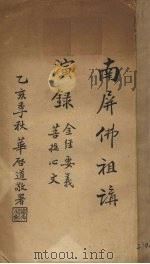 南屏佛祖講
演錄
金經要義
菩提心文
乙亥季秋 華石道敬署